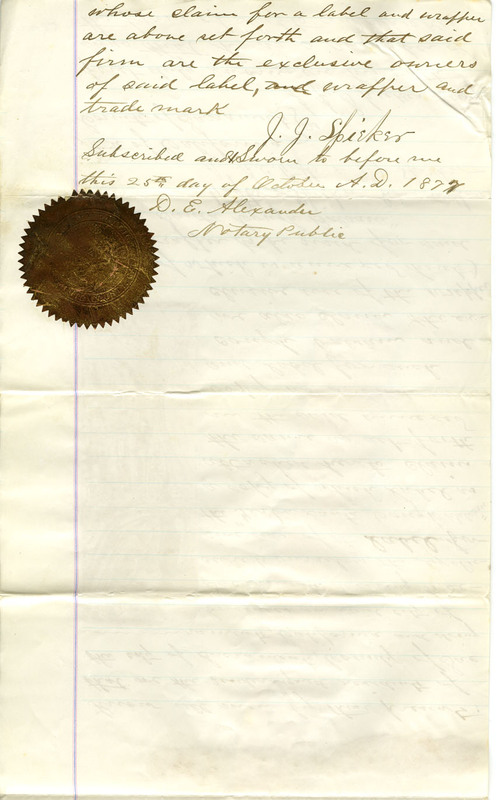 whose claim for a label and wrapper
are above set forth and that said
firm are the exclusive owners
of said label, and wrapper and
trade mark
J. J. Spieker
Subscribed and Sworn to before me
this 25th day of October A.D. 1877
D. E. Alexander
Notary Public